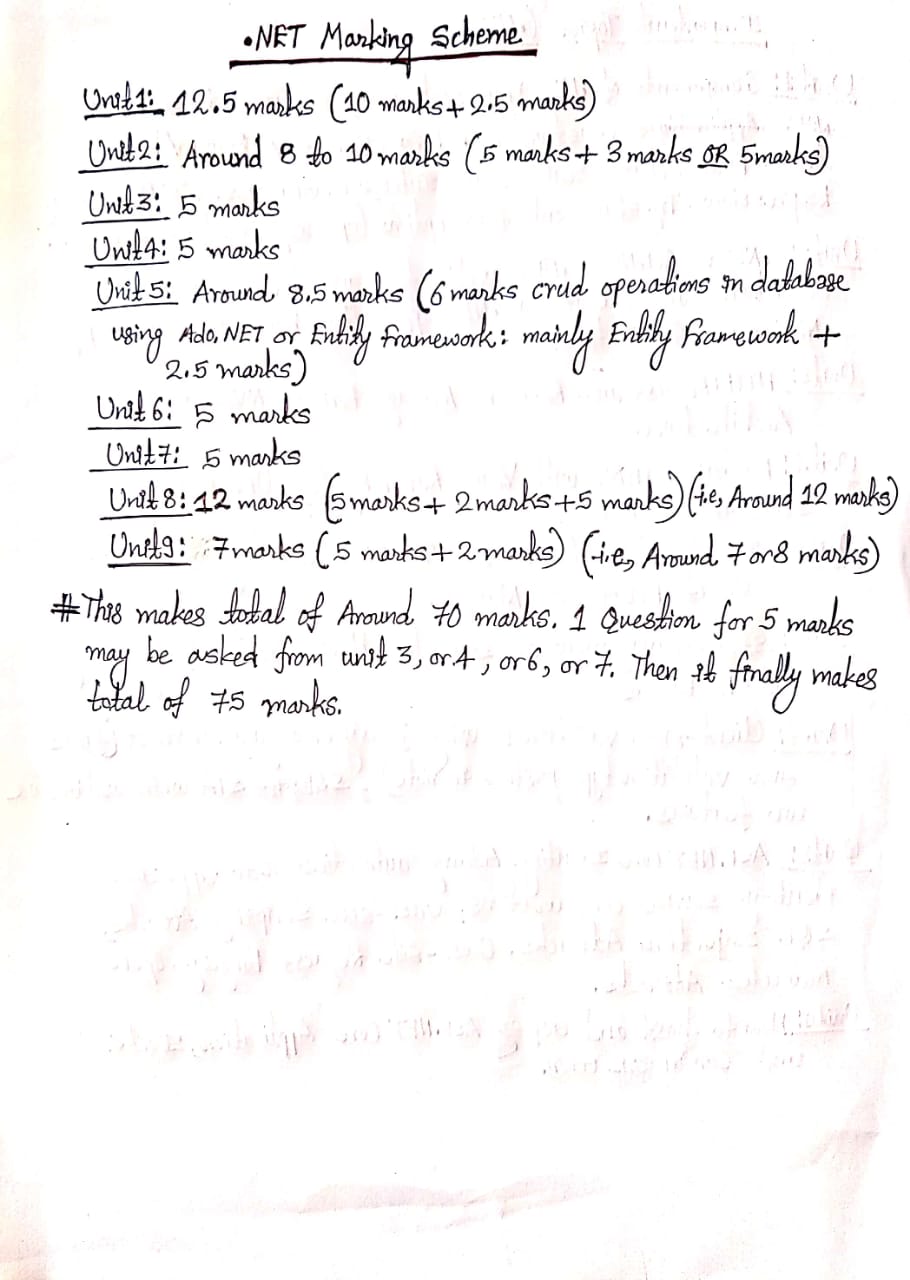 .NET Marking Scheme
Unit1: 12.5 marks (10 marks + 2.5 marks)
Unit2: Around 8 to 10 marks (5 marks + 3 marks OR 5marks)
Unit3: 5 marks
Unit4: 5 marks
Unit5: Around 8.5 marks (6 marks crud operations in database
using Ado.NET or Entity framework: mainly Entity Framework +
2.5 marks)
Unit 6: 5 marks
Unit7: 5 marks
Unit 8: 12 marks (5 marks + 2 marks + 5 marks) (i.e, Around 12 marks)
Unit9: 7 marks (5 marks + 2 marks) (i.e, Around 7 or 8 marks)
# This makes total of Around 70 marks. 1 Question for 5 marks
may be asked from unit 3, or 4, or 6, or 7. Then it finally makes
total of 75 marks.